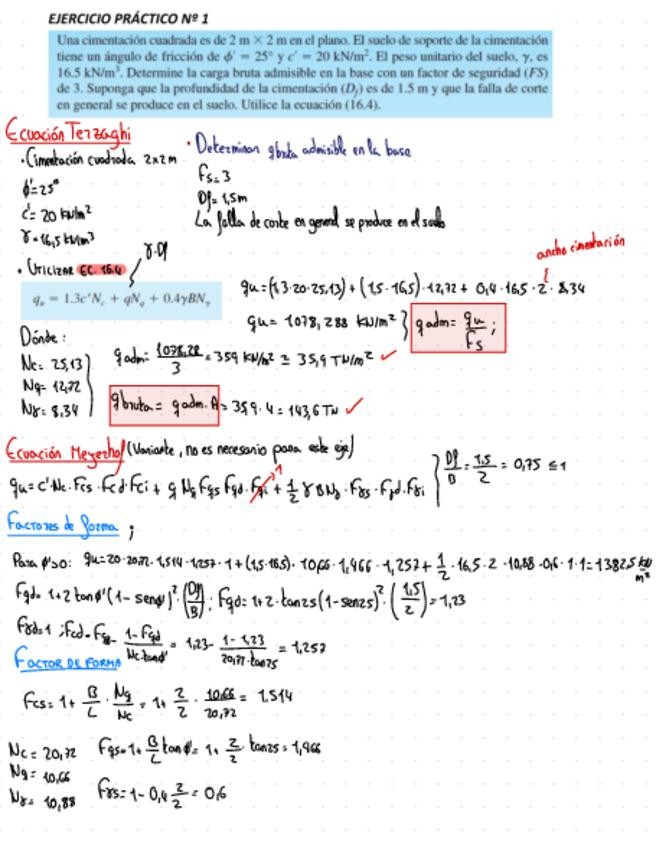 EJERCICIO PRÁCTICO Nº 1
Una cimentación cuadrada es de 2 m × 2 m en el plano. El suelo de soporte de la cimentación
tiene un ángulo de fricción de ϕ' = 25° y c' = 20 kN/m². El peso unitario del suelo, γ, es
16.5 kN/m³. Determine la carga bruta admisible en la base con un factor de seguridad (FS)
de 3. Suponga que la profundidad de la cimentación (Df) es de 1.5 m y que la falla de corte
en general se produce en el suelo. Utilice la ecuación (16.4).
Ecuación Terzaghi
· Cimentación cuadrada 2x2m
ϕ'=25°
c'= 20 kN/m²
γ=16,5 kN/m³
· Determinar qbruta admisible en la base
Fs=3
Df= 1,5m
La falla de corte en general se produce en el suelo
· Utilizar EC. 16.4
γ·Df
qu = 1.3c'Nc + qNq + 0.4γBNγ
ancho cimentación
qu=(1,3·20·25,13)+(1,5·16,5)·12,72+ 0,4·16,5·2·8,34
qu= 1078,288 kN/m² } qadm= qu/Fs ;
Dónde:
Nc= 25,13
Nq= 12,72
Nγ= 8,34
qadm= 1078,28/3 = 359 kN/m² ≅ 35,9 TN/m² ✓
qbruta= qadm.A = 35,9·4=143,6 TN ✓
Ecuación Meyerhof (Variante, no es necesario para este eje)
qu= c'Nc·Fcs·Fcd·Fci + q Nq Fqs Fqd·Fqi + 1/2 γBNγ·Fγs·Fγd·Fγi } Df/B = 1,5/2 = 0,75 ≤1
1
Factores de forma ;
Para ϕ'>0: qu=20·20,72·1,514·1,257·1+(1,5·16,5)·10,66·1,466·1,257+ 1/2·16,5·2·10,88·0,6·1·1=1382,5 kN/m²
Fqd= 1+2 tanϕ'(1-senϕ')²·(Df/B); Fqd=1+2·tan25(1-sen25)²·(1,5/2)=1,23
Fγd=1 ; Fcd=Fqd- 1-Fqd/Nc·tanϕ' = 1,23- 1-1,23/20,72·tan25 = 1,257
Factor de forma
Fcs= 1+ B/L · Nq/Nc = 1+ 2/2 · 10,66/20,72 = 1,514
Nc= 20,72
Nq= 10,66
Nγ= 10,88
Fqs=1+ B/L tanϕ'= 1+ 2/2·tan25=1,466
Fγs= 1-0,4 2/2 = 0,6